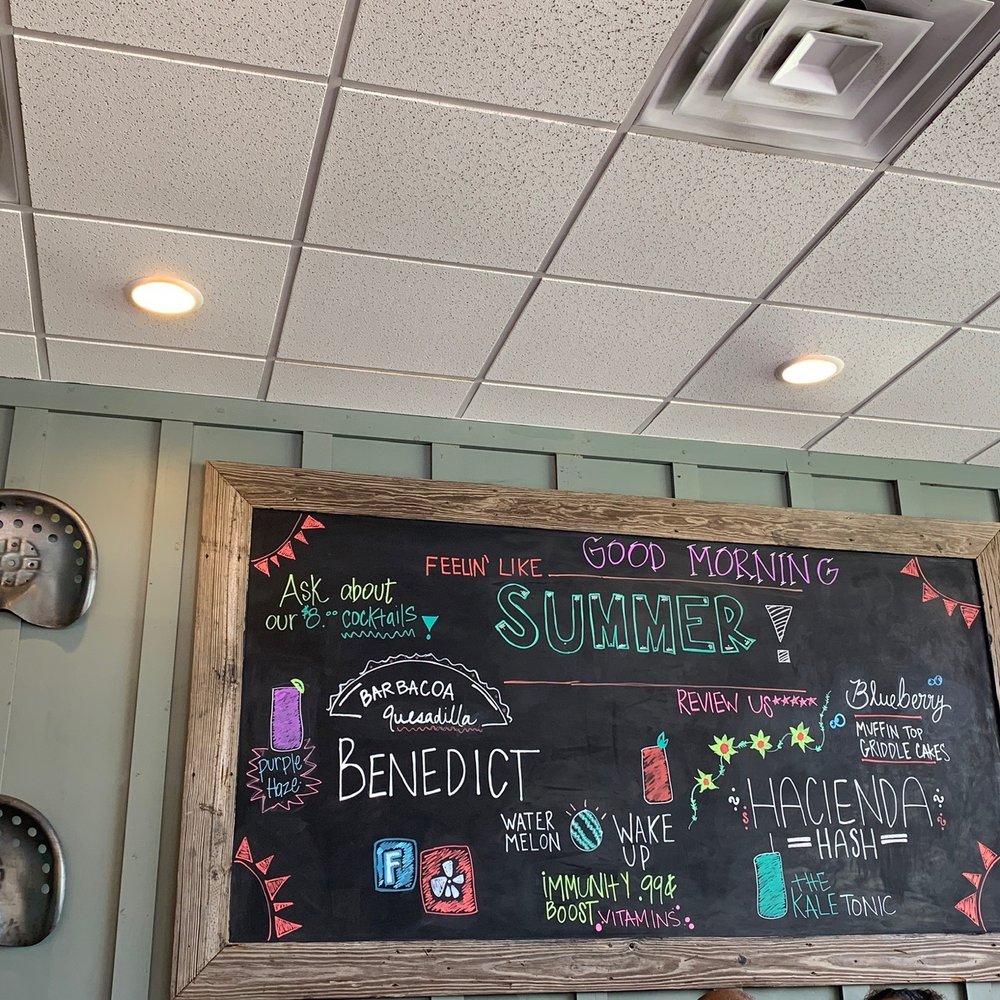 GOOD MORNING
FEELIN' LIKE
SUMMER!
Ask about
our $8.00 cocktails!
BARBACOA
Quesadilla
BENEDICT
Purple
Haze
REVIEW US*****
Blueberry
MUFFIN TOP
GRIDDLE CAKES
HACIENDA
HASH
WATER
MELON
WAKE
UP
IMMUNITY .99¢
BOOST VITAMINS
F
THE
KALE TONIC